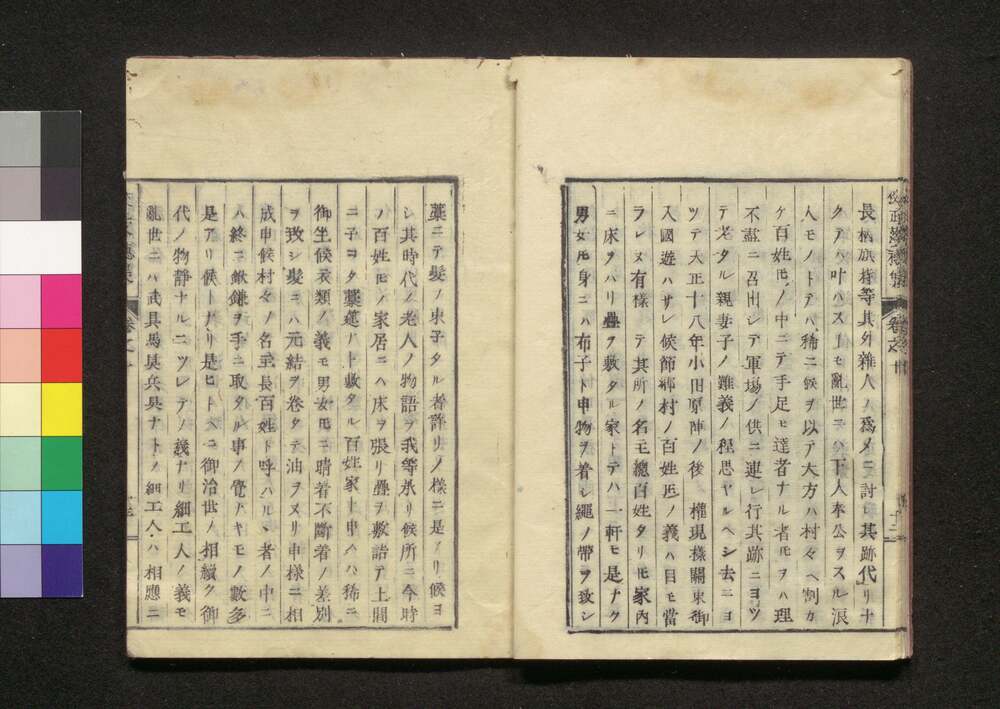 長柄旗持等其外雜人ノ爲メニ討レ其跡代リ十
クテハ叶ハス一モ亂世ニハ下人奉公ヲスル浪
人モノトテハ稀ニ候ヲ以テ大方ハ村々ヘ割カ
ケ百姓𪜈ノ中ニテ手足モ達者ナル者𪜈ヲハ理
不盡ニ召出シテ軍場ノ供ニ連レ行其跡ニヨツ
テ老タル親妻子ノ難義ノ程思ヤルヘシ去ニヨ
ツテ天正十八年小田原陣ノ後 權現樣關東御
入國遊ハサレ候節鄕村ノ百姓𪜈ノ義ハ目モ當
ラレヌ有樣 テ其所ノ名モ總百姓タリモ家內
ニ床ヲハリ疊ヲ敷タル家トテハ一軒モ是ナク
男女𪜈身ニハ布子ト申物ヲ着シ繩ノ帶ヲ致シ
藁ニテ髮ノ束子タル者許リノ樣ニ是アリ候ヨ
シ其時代ノ老人ノ物語ヲ我等承リ候所ニ今時
ノ百姓𪜈ノ家居ニハ床ヲ張リ疊ヲ敷詰テ上間
ニ子コタ藁莚ナト敷タル百姓家ト申ハ稀ニ
御坐候衣類ノ義モ男女𪜈ニ晴着不斷着ノ差別
ヲ致シ髮ニハ元結ヲ卷タテ油ヲヌリ申樣ニ相
成申候村々ノ名主長百姓ト呼ハルヽ者ノ中ニ
ハ終ニ鍬鎌ヲ手ニ取タル事ノ覺ヘヤモノ數多
是アリ候トナリ是ヒトヘニ御治世ノ相續ク御
代ノ物靜ナルニツレテノ義ナリ細工人ノ義モ
亂世ニハ武具馬具兵具ナトノ細工人ハ相應ニ